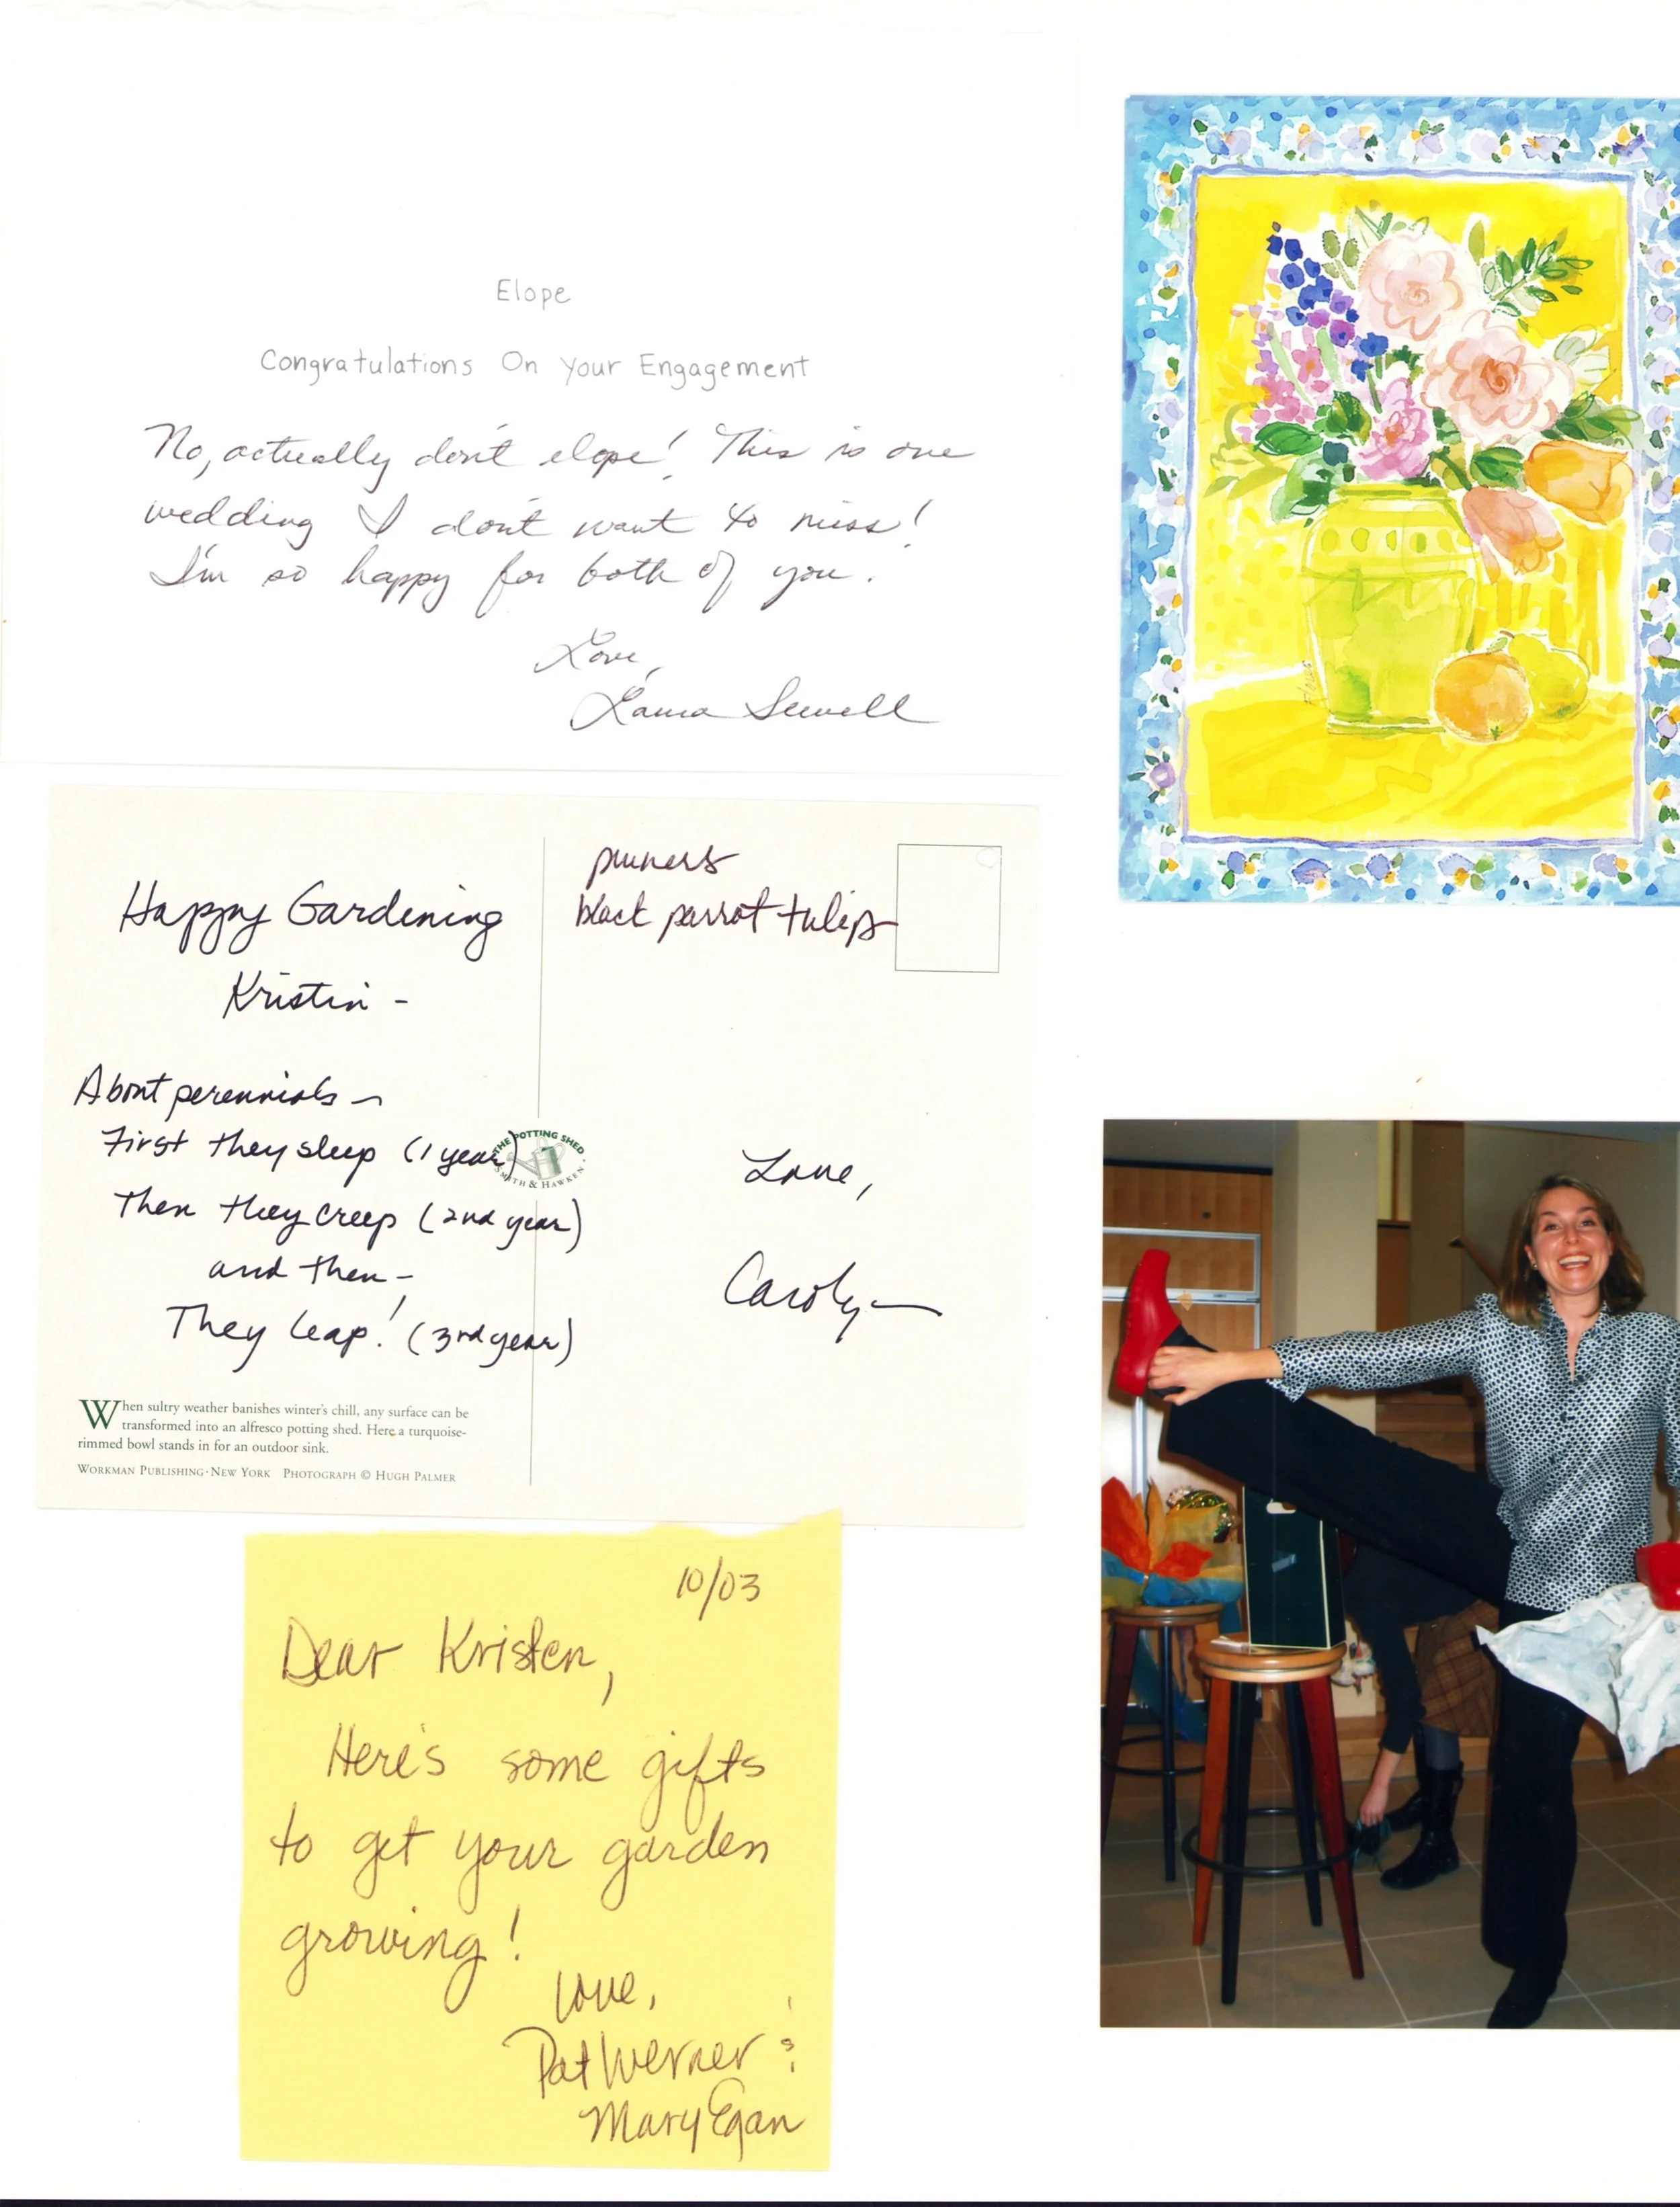 Elope
Congratulations On Your Engagement
No, actually don't elope! This is one
wedding I don't want to miss!
I'm so happy for both of you.
Love,
Laura Sewell
Happy Gardening
Kristin -
About perennials -
First they sleep (1 year)
Then they creep (2nd year)
and then -
They leap! (3rd year)
When sultry weather banishes winter's chill, any surface can be
transformed into an alfresco potting shed. Here a turquoise-
rimmed bowl stands in for an outdoor sink.
WORKMAN PUBLISHING · NEW YORK PHOTOGRAPH © HUGH PALMER
THE POTTING SHED
SMITH & HAWKEN
pruners
black parrot tulips
Love,
Carolyn
10/03
Dear Kristen,
Here's some gifts
to get your garden
growing!
Love,
Pat Werner &
Mary Egan
Flores